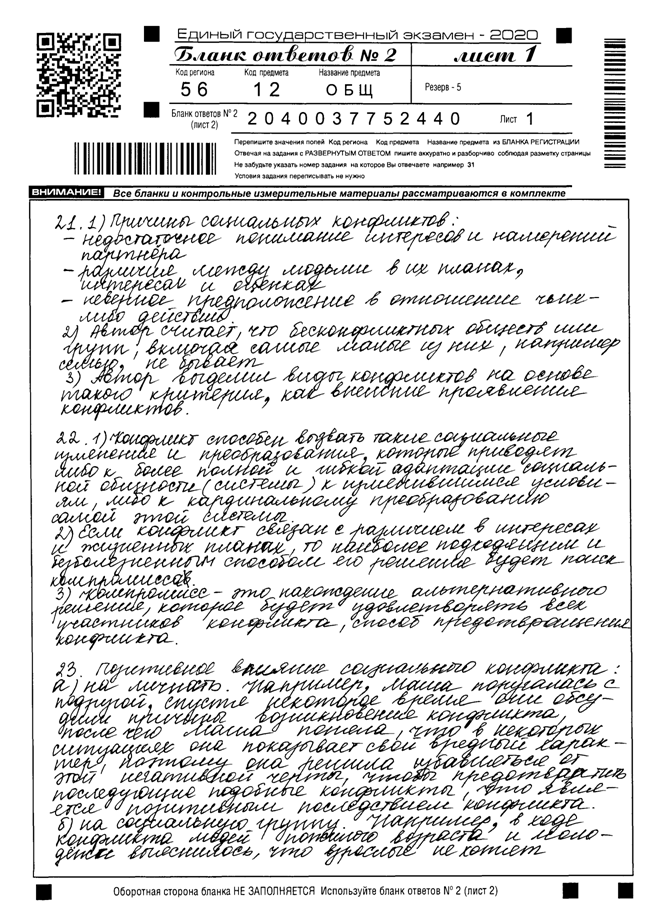 Единый государственный экзамен - 2020
Бланк ответов № 2 лист 1
Код региона Код предмета Название предмета
56 12 ОБЩ Резерв - 5
Бланк ответов № 2 (лист 2) 2040037752440 Лист 1
Перепишите значения полей Код региона Код предмета Название предмета из БЛАНКА РЕГИСТРАЦИИ
Отвечая на задания с РАЗВЕРНУТЫМ ОТВЕТОМ пишите аккуратно и разборчиво соблюдая разметку страницы
Не забудьте указать номер задания на которое Вы отвечаете например 31
Условия задания переписывать не нужно
ВНИМАНИЕ! Все бланки и контрольные измерительные материалы рассматриваются в комплекте
21. 1) Причины социальных конфликтов:
- недостаточное понимание интересов и намерений
партнёра
- различия между людьми в их планах,
интересах и оценках
- неверное предположение в отношение чьих-
либо действий.
2) Автор считает, что бесконфликтных обществ или
групп, включая самые малые из них, например
семью, не бывает
3) Автор выделил виды конфликтов на основе
такого критерия, как внешние проявление
конфликтов.
22. 1) Конфликт способен вызвать такие социальные
изменения и преобразования, которые приводят
либо к более полной и гибкой адаптации социаль-
ной общности (системы) к изменившимся услови-
ям, либо к кардинальному преобразованию
самой этой системы.
2) Если конфликт связан с различием в интересах
и жизненных планах, то наиболее подходящим и
безболезненным способом его решения будет поиск
компромиссов.
3) Компромисс - это нахождение альтернативного
решение, которое будет удовлетворять всех
участников конфликта, способ предотвращения
конфликта.
23. Позитивное влияние социального конфликта:
а) на личность. Например, Маша поругалась с
подругой, спустя некоторое время они обсу-
дили причины возникновение конфликта,
после чего Маша поняла, что в некоторых
ситуациях она показывает свой вредный харак-
тер, поэтому она решила избавиться от
этой негативной черты, чтобы предотвратить
последующие подобные конфликты, это явля-
ется позитивным последствием конфликта.
б) на социальную группу. Например, в ходе
конфликта людей пожилого возраста и моло-
дёжи выяснилось, что взрослые не хотят
Оборотная сторона бланка НЕ ЗАПОЛНЯЕТСЯ Используйте бланк ответов № 2 (лист 2)